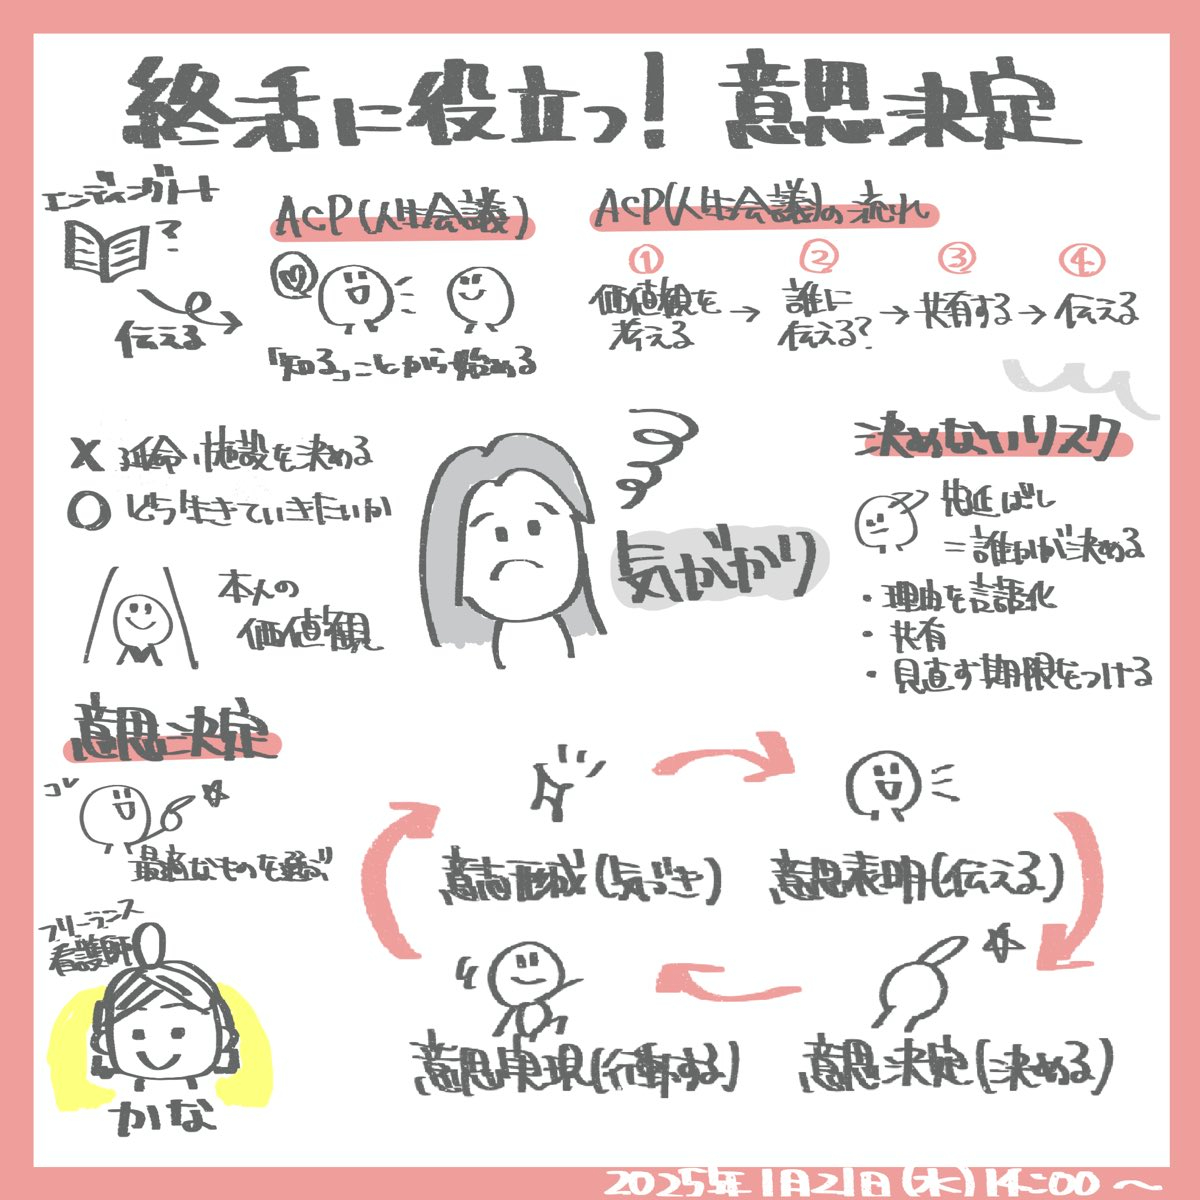 終活に役立つ!意思決定
エンディングノート
?
伝える
ACP(人生会議)
「知る」ことから始める
ACP(人生会議)の流れ
①
価値観を
考える
→
②
誰に
伝える?
→
③
共有する
→
④
伝える
X 延命、施設を決める
○ どう生きていきたいか
本人の
価値観
気がかり
決めないリスク
先延ばし
=誰かが決める
・理由を言語化
・共有
・見直す期限をつける
意思決定
コレ
最適なものを選ぶ
意志形成(気づき)
意思表明(伝える)
意思実現(行動する)
意思決定(決める)
フリーランス
看護師
かな
2025年1月21日(水)14:00〜